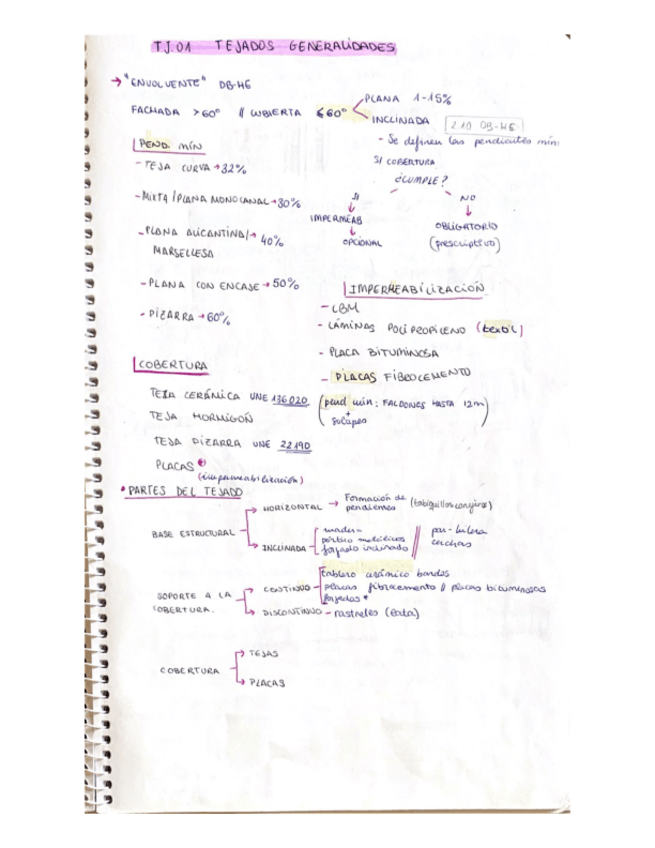 TJ.01 TEJADOS GENERALIDADES
→ "ENVOLVENTE" DB-HE
FACHADA > 60° // CUBIERTA ≤ 60°
PLANA 1-15%
INCLINADA 2.10 DB-HS
- Se definen las pendientes mín.
S/ COBERTURA
¿CUMPLE?
SI
IMPERMEAB
OPCIONAL
NO
OBLIGATORIO
(prescriptivo)
PEND. MÍN
- TEJA CURVA → 32%
- MIXTA / PLANA MONOCANAL → 30%
- PLANA ALICANTINA / MARSELLESA → 40%
- PLANA CON ENCASE → 50%
- PIZARRA → 60%
IMPERMEABILIZACIÓN
- LBM
- LÁMINAS POLIPROPILENO (textil)
- PLACA BITUMINOSA
- PLACAS FIBROCEMENTO
COBERTURA
TEJA CERÁMICA UNE 136020 (pend mín: FALDONES HASTA 12m + solapes)
TEJA HORMIGÓN
TEJA PIZARRA UNE 22190
PLACAS
(impermeabilización)
• PARTES DEL TEJADO
BASE ESTRUCTURAL
HORIZONTAL → Formación de pendientes (tabiquillos conejeros)
INCLINADA
madera
pórtico metálicos
forjado inclinado
par-hilera
cerchas
SOPORTE A LA COBERTURA.
CONTINUO
tablero cerámico bardos
placas fibrocemento // placas bituminosas
forjados *
DISCONTINUO - rastreles
COBERTURA
TEJAS
PLACAS